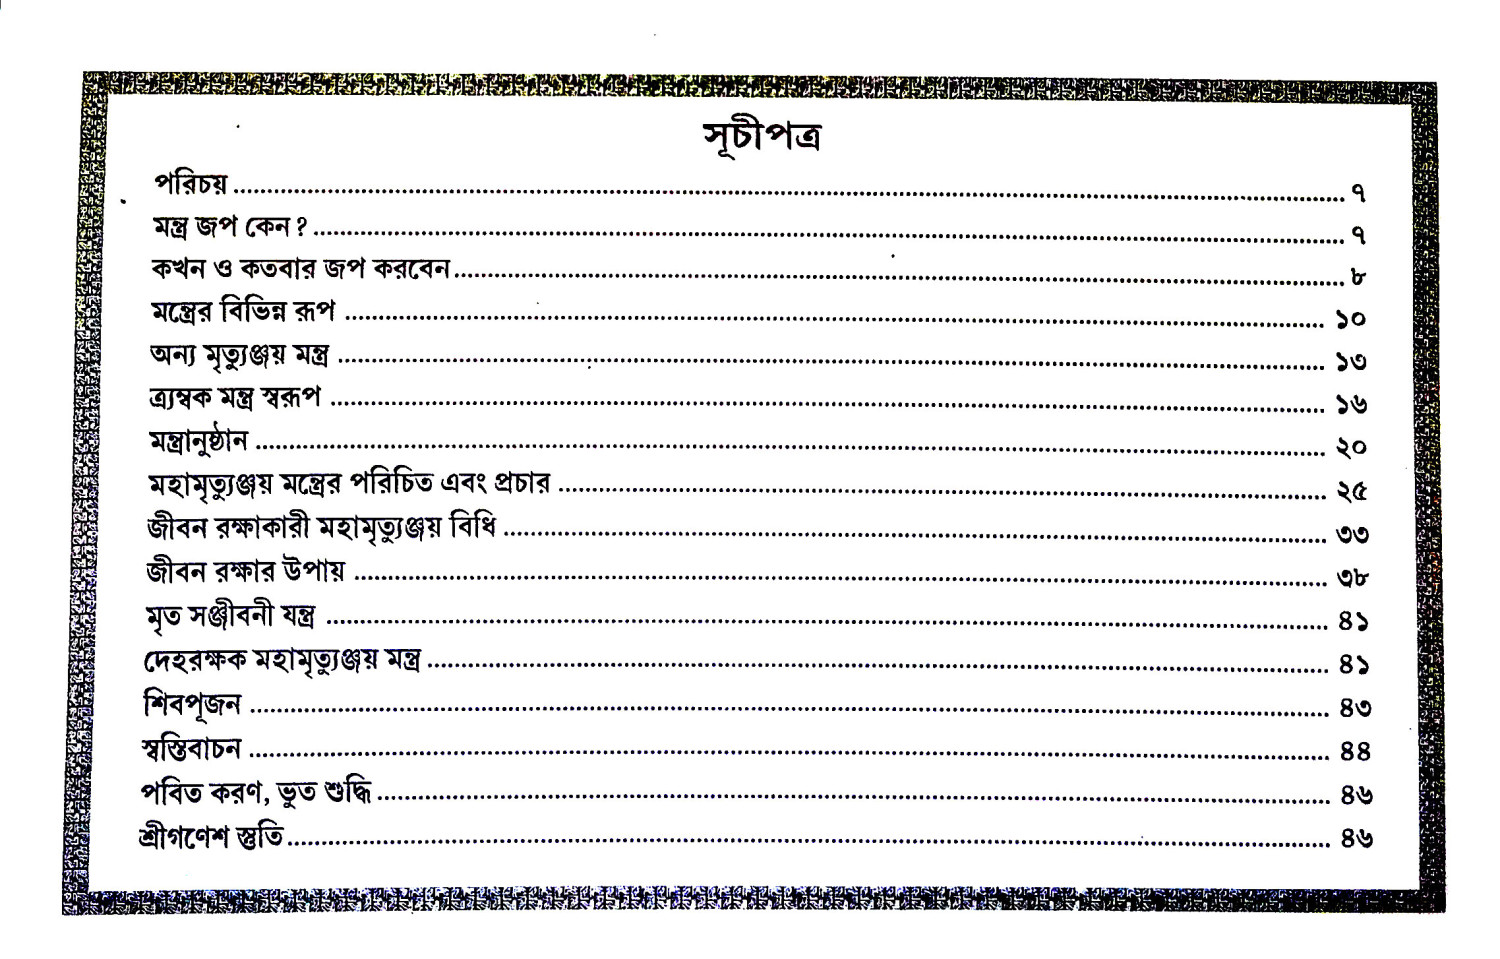 সূচীপত্র
পরিচয় ........ ৭
মন্ত্র জপ কেন ? ........ ৭
কখন ও কতবার জপ করবেন ........ ৮
মন্ত্রের বিভিন্ন রূপ ........ ১০
অন্য মৃত্যুঞ্জয় মন্ত্র ........ ১৩
ত্র্যম্বক মন্ত্র স্বরূপ ........ ১৬
মন্ত্রানুষ্ঠান ........ ২০
মহামৃত্যুঞ্জয় মন্ত্রের পরিচিত এবং প্রচার ........ ২৫
জীবন রক্ষাকারী মহামৃত্যুঞ্জয় বিধি ........ ৩৩
জীবন রক্ষার উপায় ........ ৩৮
মৃত সঞ্জীবনী যন্ত্র ........ ৪১
দেহরক্ষক মহামৃত্যুঞ্জয় মন্ত্র ........ ৪১
শিবপূজন ........ ৪৩
স্বস্তিবাচন ........ ৪৪
পবিত করণ, ভুত শুদ্ধি ........ ৪৬
শ্রীগণেশ স্তুতি ........ ৪৬